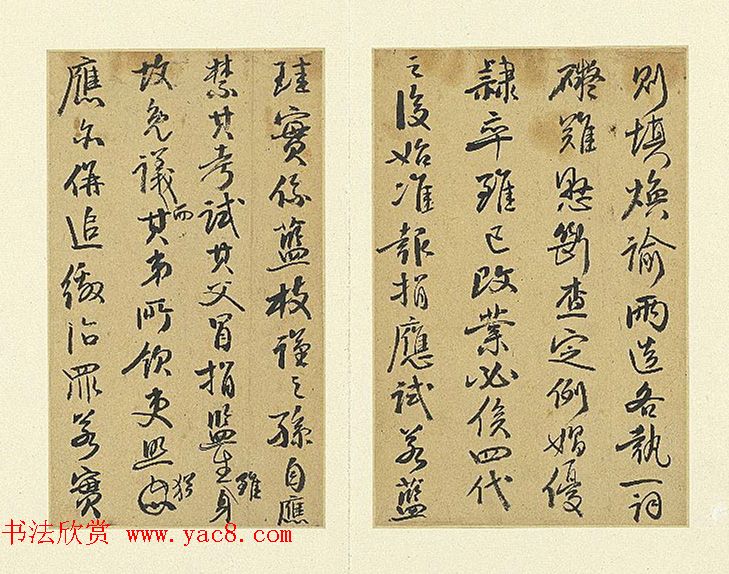 則填煥諭兩造各執一詞
礙難懸斷查定例娼優
隸卒雖已改業必俟四代
之後始准報捐應試若藍
珪實係藍枝謹之孫自應
禁其考試其父冒捐監生雖身
故免議而其弟所飲吏照猶
應分併追繳治罪若實
书法欣赏 www.yac8.com